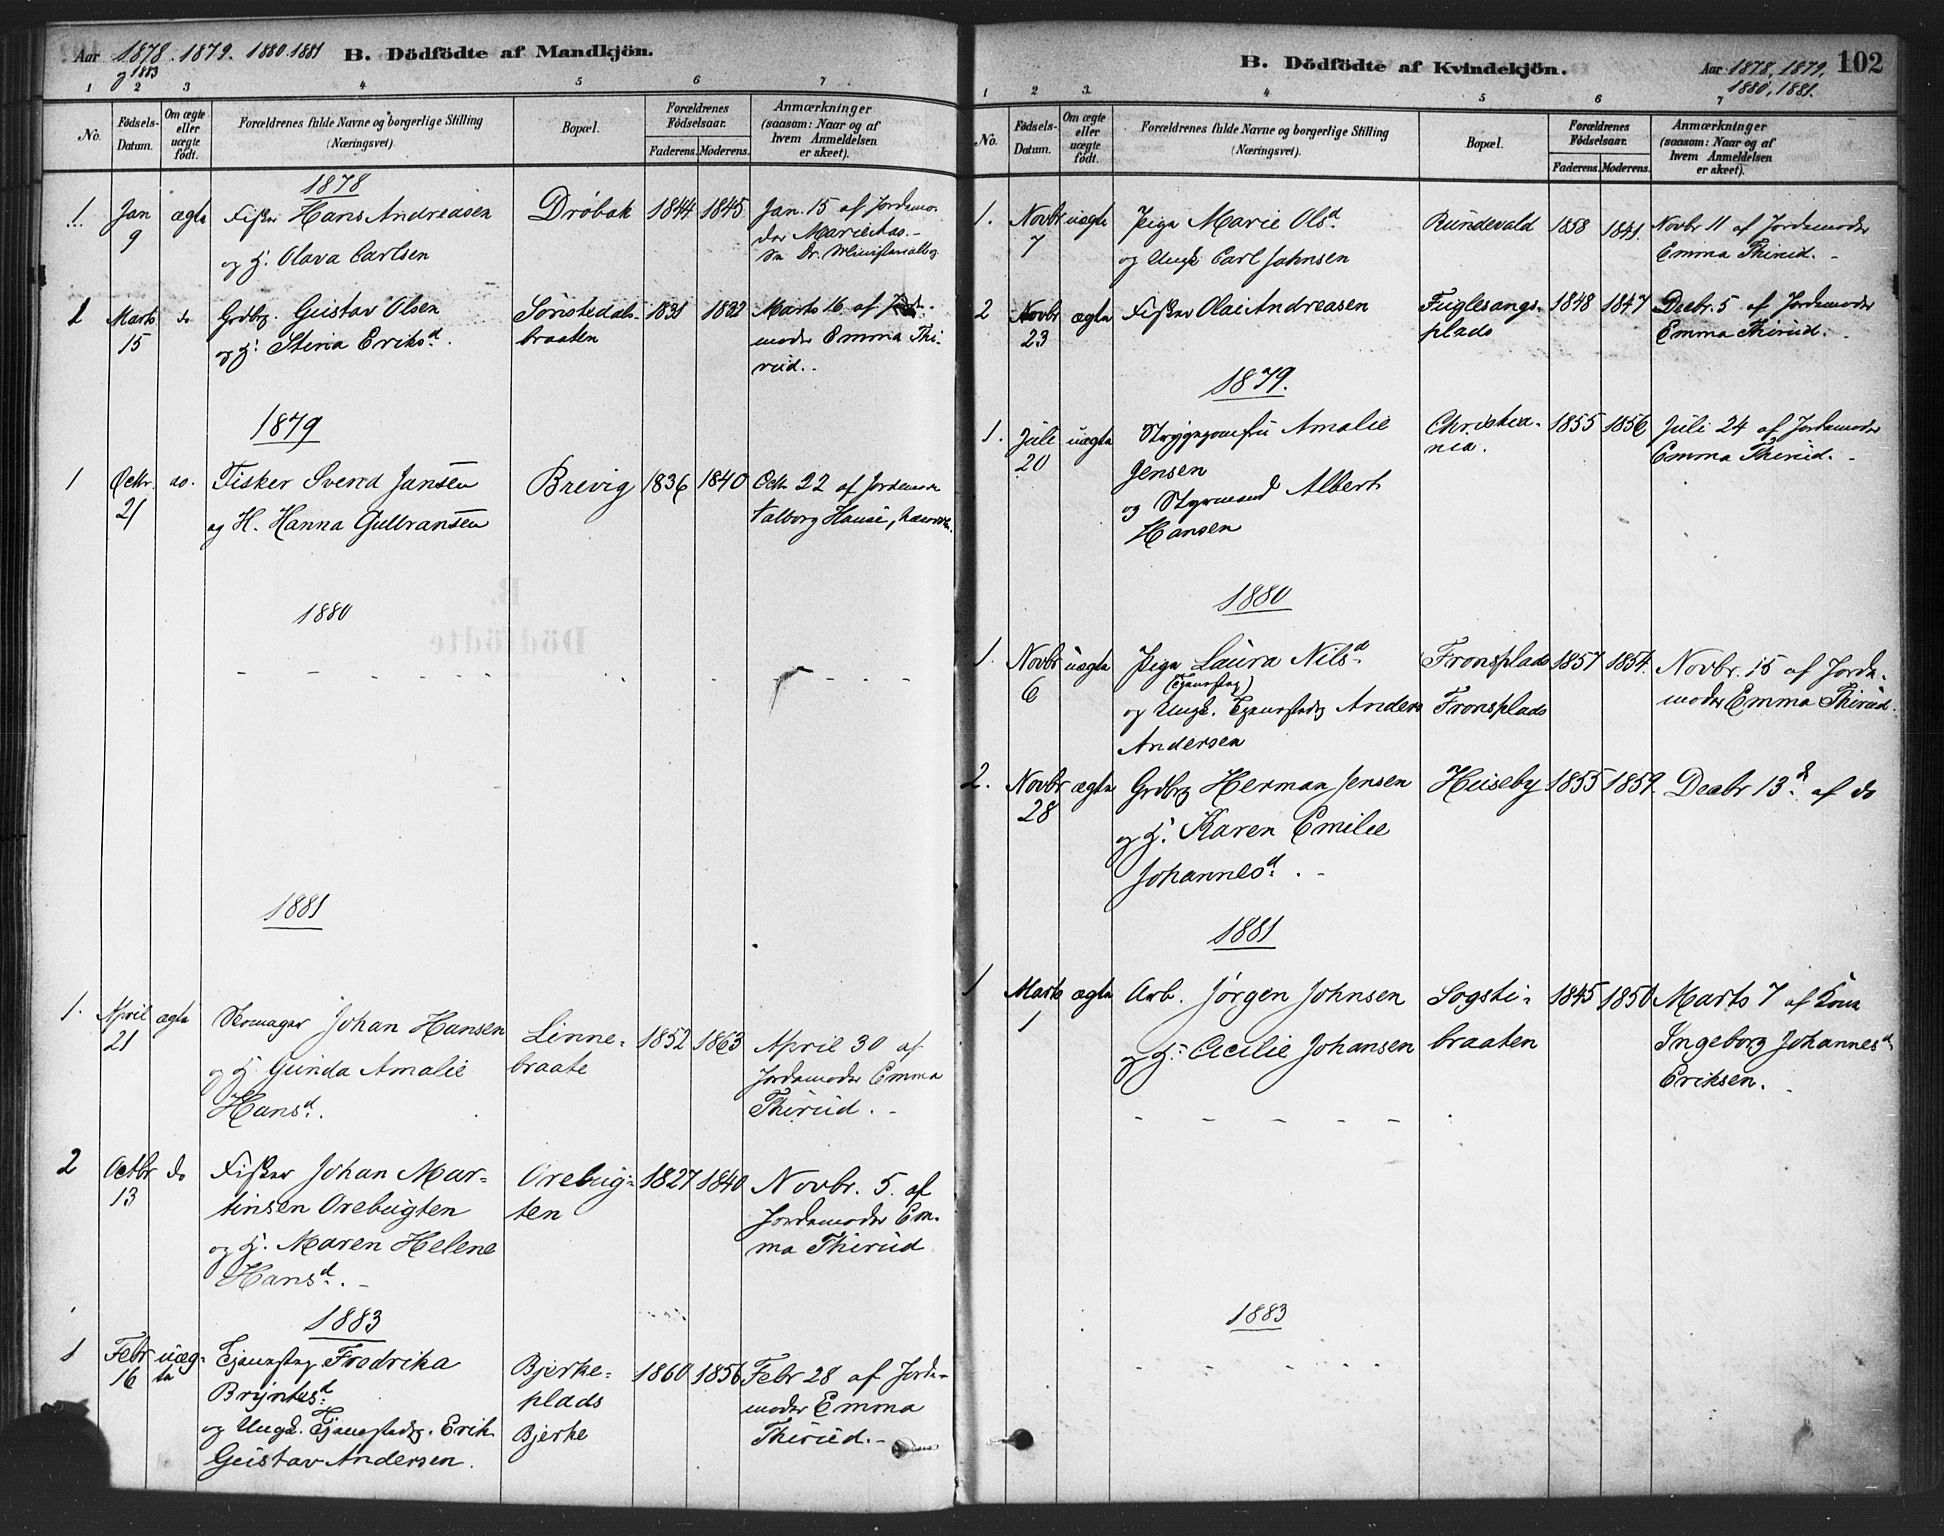 Aar 1878. 1879. 1880. 1881
og 1883
B. Dödfödte af Mandkjön.
1 2 3 4 5 6 7
No.
Födsels-
Datum.
Om ægte
eller
uægte
födt.
Forældrenes fulde Navne og borgerlige Stilling
(Næringsvei).
Bopæl.
Forældrenes
Födselsaar.
Faderens. Moderens.
Anmærkninger
(saasom: Naar og af
hvem Anmeldelsen
er skeet).
1878
1. Jan ægte Fisker Hans Andreasen Dröbak 1844 1845 Jan. 15 af Jordemo-
9 og H. Olava Carlsen
der Marie Aas.-
2 Marts do Grdbrg. Gustav Olsen Sönstedals- 1831 1832 Marts 16 af Jorde-
15 og H. Stina Eriksd. braaten moder Emma Thi-
rud.
1879
1 Octbr. do. Fisker Svend Jansen Brevig 1836 1840 Octb 22 af Jordemoder
21 og H. Hanna Gulbransen Valborg
1880
1881
1. April ægte Skomager Johan Hansen Linne- 1852 1863 April 30 af
21 og H. Gunda Amalie braate Jordemoder Emma
Hansd. Thirud.
2 Octbr do Fisker Johan Mar- Orebug- 1827 1840 Novbr. 5. af
13 tinsen Orebugten ten Jordemoder Em-
og H. Maren Helene ma Thirud
Hansd.
1883
1 Febr uæg- Tjenestep. Fredrika Bjerke- 1860 1856 Febr 28 af Jorde-
16 te Bryntesd. plads moder Emma
og Ungk. Tjenestedrg. Erik Bjerke Thirud.
Gustav Andersen.
B. Dödfödte af Kvindekjön.
Aar 1878, 1879,
1880, 1881.
102
1 2 3. 4 5 6 7
No.
Födsels-
Datum.
Om ægte
eller
uægte
födt.
Forældrenes fulde Navne og borgerlige Stilling
(Næringsvei).
Bopæl.
Forældrenes
Födselsaar.
Faderens. Moderens.
Anmærkninger
(saasom: Naar og af
hvem Anmeldelsen
er skeet).
1. Novbr uægte Pige Marie Olsd. Rundevald 1858 1841. Novbr 11 af Jordemoder
7 og Ungk Carl Johnsen Emma Thirud.
2 Novbr ægte Fisker Olai Andreasen Fuglesangs- 1848 1847 Decbr. 5 af Jordemoder
23 plads Emma Thirud.
1879.
1. Juli uægte Strygejomfru Amalie Christia- 1855 1856 Juli 24 af Jordemoder
20 Jensen nia. Emma Thirud.
og Styrmand Albert
Hansen
1880
1. Novbr uægte Pige Laura Nilsd. Fronsplads 1857 1854. Novbr. 15 af Jorde-
6 (Tjenestep) moder Emma Thirud.
og Ungk. Tjenestedrg Anders Fronsplads
Andersen
2. Novbr ægte Grdbrg Herman Jensen Huseby 1855 1859. Decbr 13d. af do
28 og H. Karen Emilie
Johannesd.
1881
1 Marts ægte Arb. Jörgen Johnsen Sogsti- 1845 1850 Marts 7 af Kone
1 og H. Cecilie Johansen braaten Ingeborg Johannesd.
Eriksen.
1883